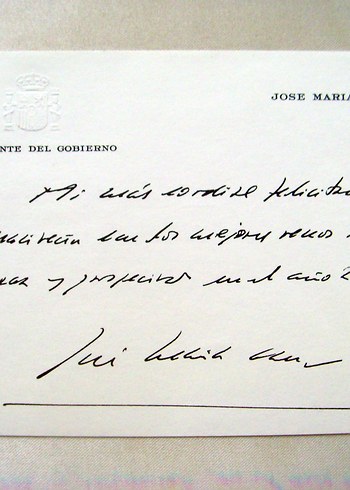 JOSE MARIA
NTE DEL GOBIERNO
Mi más cordial felicita
con los mejores
y prosperidad en el año 2
José María Aznar